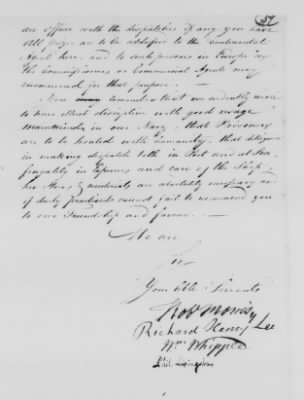 57
an officer with the dispatches if any you have
All prizes are to be addressed to the Continental
Agents here, and to such persons in Europe as
the Commissioners or Commercial Agents may
recommend for that purpose.
You remember that we ardently wish
to have strict discipline with good usage
maintained in our Navy, that Prisoners
are to be treated with humanity, that diligence
in making dispatch both in Port and at Sea
frugality in Expences and care of the Ship
her Stores & materials are absolutely necessary and
if duly practised cannot fail to recommend you
to our Friendship and favour.
We are
Sir
Your hble Servants
Rob Morris
Richard Henry Lee
Wm Whipple
Phil. Livingston